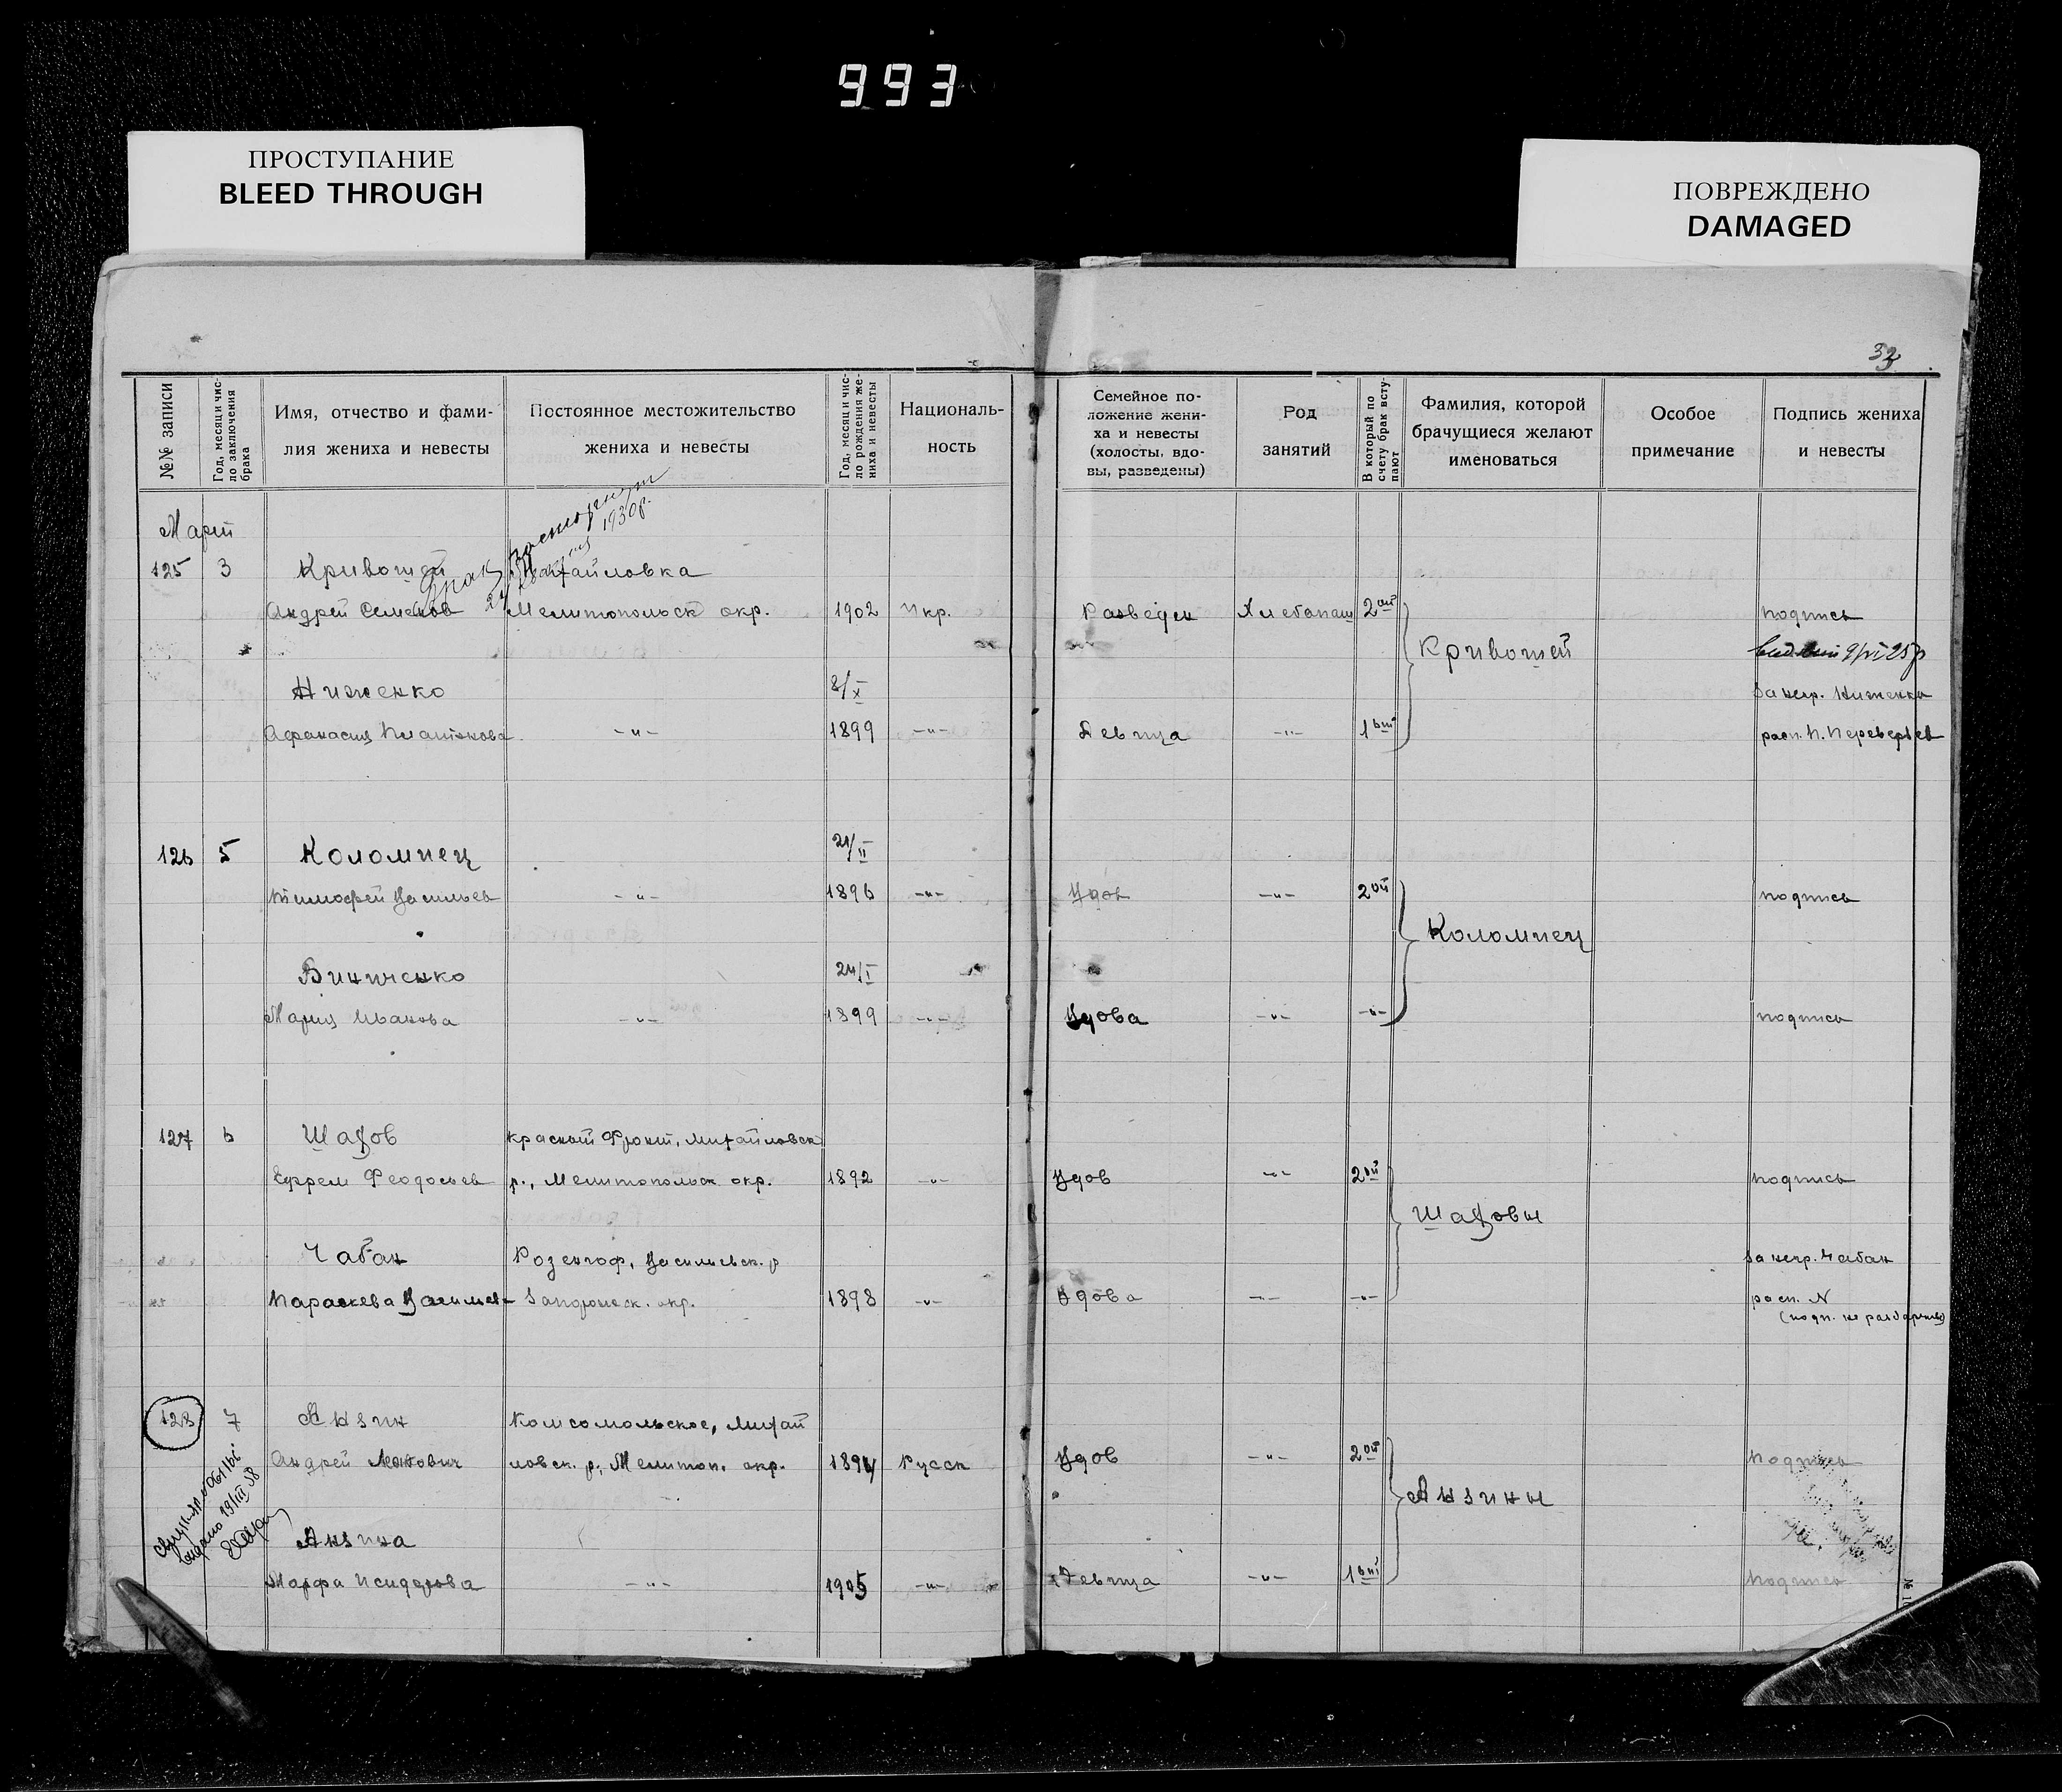 993
ПРОСТУПАНИЕ
BLEED THROUGH
ПОВРЕЖДЕНО
DAMAGED
№№ записи
Год, месяц и чис-
ло заключения
брака
Имя, отчество и фами-
лия жениха и невесты
Постоянное местожительство
жениха и невесты
Год, месяц и чис-
ло рождения же-
ниха и невесты
Националь-
ность
Семейное по-
ложение жени-
ха и невесты
(холосты, вдо-
вы, разведены)
Род
занятий
В который по
счету брак всту-
пают
Фамилия, которой
брачущиеся желают
именоваться
Особое
примечание
Подпись жениха
и невесты
Март
брак расторгнут
1930 г.
125 3 Кривошей Михайловка
Андрей Семенов Мелитопольск окр. 1902 Укр. Разведен Хлебопаш 2ой подпись
Кривошей
Ниженко 8/X За негр. Ниженко
Афанасия Платонова -"- 1899 -"- Девица -"- 1вый расп. П. Переверзев
126 5 Коломиец 21/II
Тимофей Васильев -"- 1896 -"- Вдов -"- 2ой подпись
Коломиец
Винниченко 24/I
Мария Иванова -"- 1899 -"- Вдова -"- -"- подпись
127 6 Шахов Красный Фронт, Михайловск
Ефрем Феодосьев р., Мелитопольск окр. 1892 -"- Вдов -"- 2ой подпись
Шаховы
Чабан Розенгоф, Васильевск. р За негр. Чабан
Параскева Васильев Запорожск. окр. 1898 -"- Вдова -"- -"- расп. N
(подп. не разборчив)
128 7 Анзин Комсомольское, Михай
Андрей ловск. р., Мелитоп. окр. 1894 Русск Вдов -"- 2ой подпись
Анзины
выдано 19/III 38
Анзина
Марфа Исидорова -"- 1905 -"- Девица -"- 1вый подпись